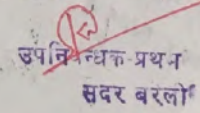 उपनिबन्धक-प्रथम
सदर बरेली